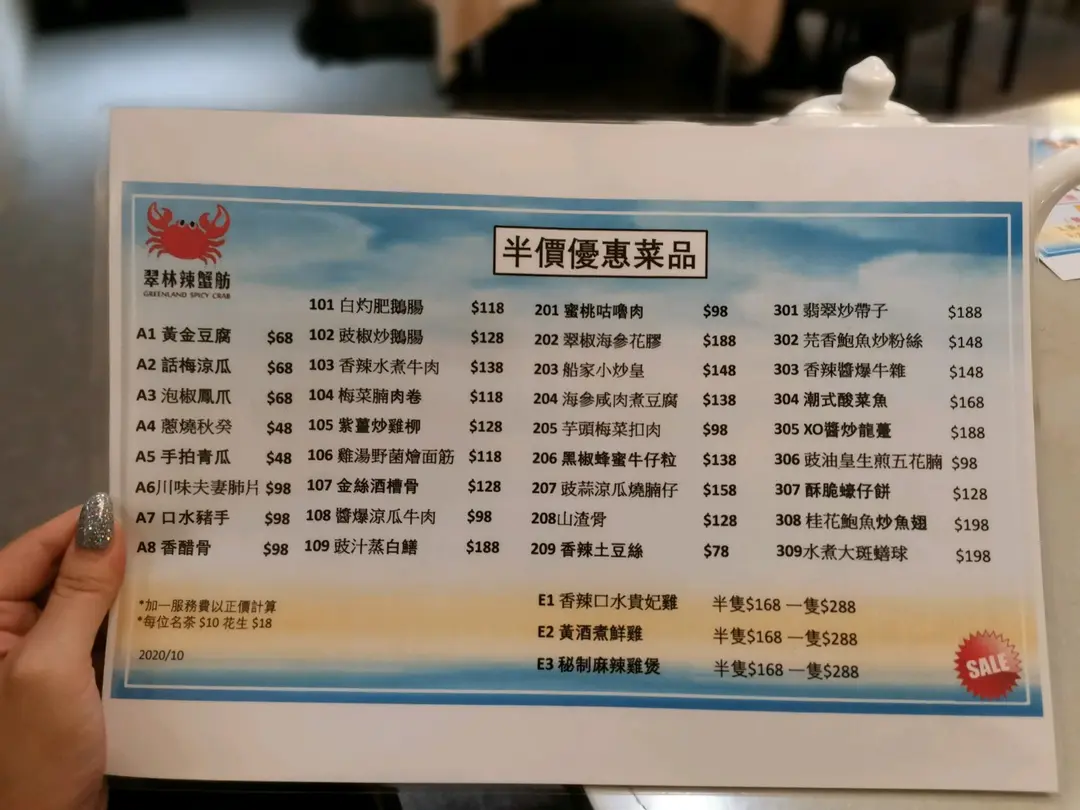 半價優惠菜品
翠林辣蟹舫
GREENLAND SPICY CRAB
A1 黃金豆腐 $68
A2 話梅涼瓜 $68
A3 泡椒鳳爪 $68
A4 蔥燒秋葵 $48
A5 手拍青瓜 $48
A6川味夫妻肺片 $98
A7 口水豬手 $98
A8 香醋骨 $98
101 白灼肥鵝腸 $118
102 豉椒炒鵝腸 $128
103 香辣水煮牛肉 $138
104 梅菜腩肉卷 $118
105 紫薑炒雞柳 $128
106 雞湯野菌燴面筋 $118
107 金絲酒槽骨 $128
108 醬爆涼瓜牛肉 $98
109 豉汁蒸白鱔 $188
201 蜜桃咕嚕肉 $98
202 翠椒海參花膠 $188
203 船家小炒皇 $148
204 海參咸肉煮豆腐 $138
205 芋頭梅菜扣肉 $98
206 黑椒蜂蜜牛仔粒 $138
207 豉蒜涼瓜燒腩仔 $158
208山渣骨 $128
209 香辣土豆絲 $78
301 翡翠炒帶子 $188
302 芫香鮑魚炒粉絲 $148
303 香辣醬爆牛雜 $148
304 潮式酸菜魚 $168
305 XO醬炒龍躉 $188
306 豉油皇生煎五花腩 $98
307 酥脆蠔仔餅 $128
308 桂花鮑魚炒魚翅 $198
309水煮大斑鱔球 $198
E1 香辣口水貴妃雞 半隻$168 一隻$288
E2 黃酒煮鮮雞 半隻$168 一隻$288
E3 秘制麻辣雞煲 半隻$168 一隻$288
*加一服務費以正價計算
*每位名茶 $10 花生 $18
2020/10
SALE